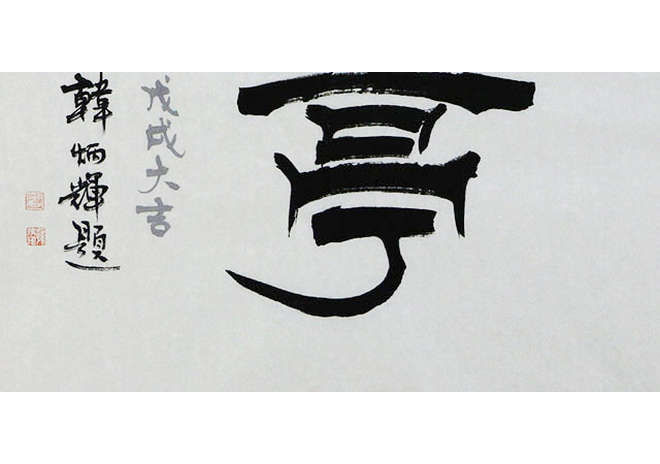 亭
戊戌大吉
韓炳輝題